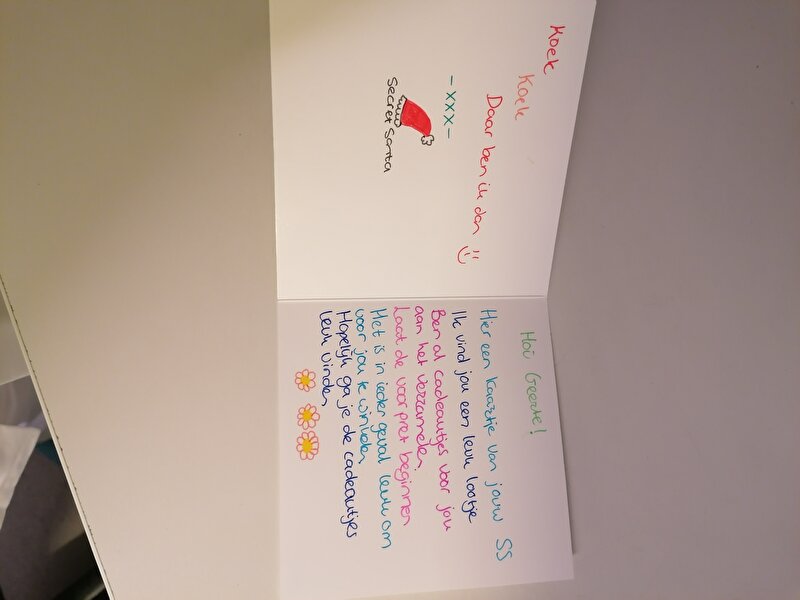 Koek
Koek
Daar ben ik dan
-xxx-
Secret Santa
Hoi Geerte!
Hier een kaartje van jouw SS
Ik vind jou een leuk lootje
Ben al cadeautjes voor jou
aan het verzamelen.
Laat de voorpret beginnen
Het is in ieder geval leuk om
voor jou te winkelen
Hopelijk ga je de cadeautjes
leuk vinden